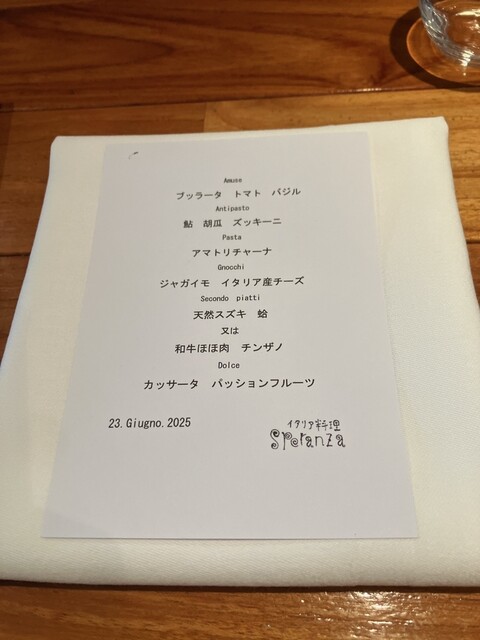 Amuse
ブッラータ トマト バジル
Antipasto
鮎 胡瓜 ズッキーニ
Pasta
アマトリチャーナ
Gnocchi
ジャガイモ イタリア産チーズ
Secondo piatti
天然スズキ 蛤
又は
和牛ほほ肉 チンザノ
Dolce
カッサータ パッションフルーツ
23.Giugno.2025
イタリア料理
Speranza